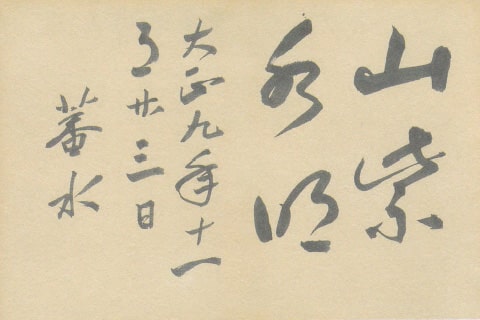 山紫
水明
大正九年十一
月廿三日
蕃水